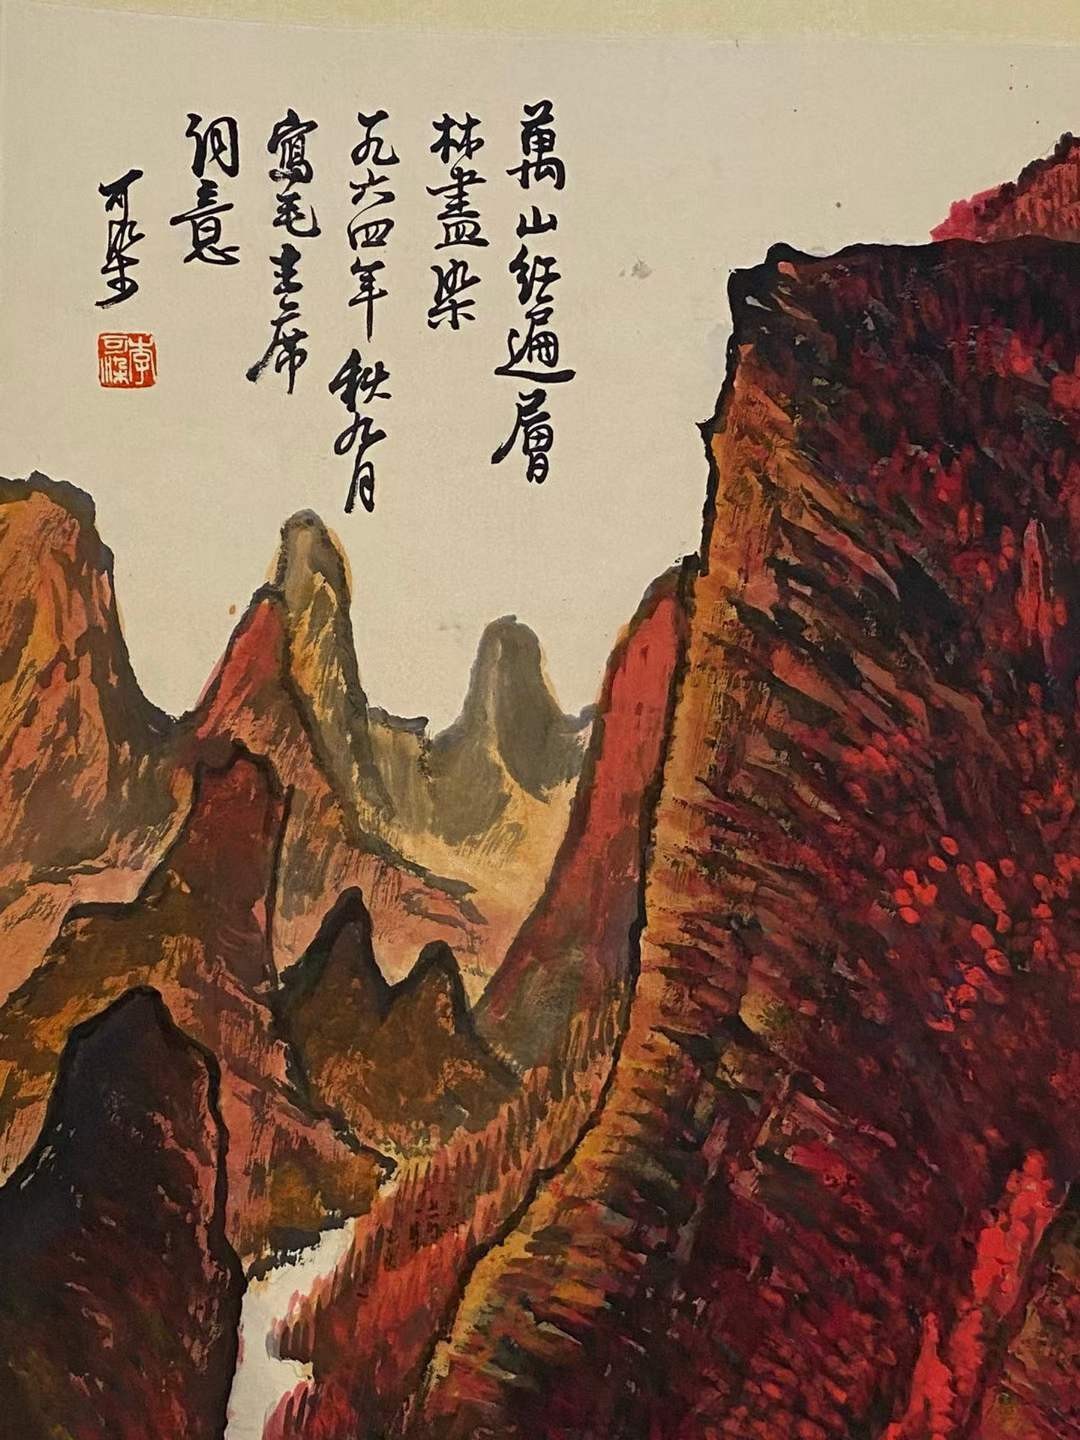 萬山红遍層
林盡染
一九六四年秋九月
寫毛主席
词意
可染
李可染